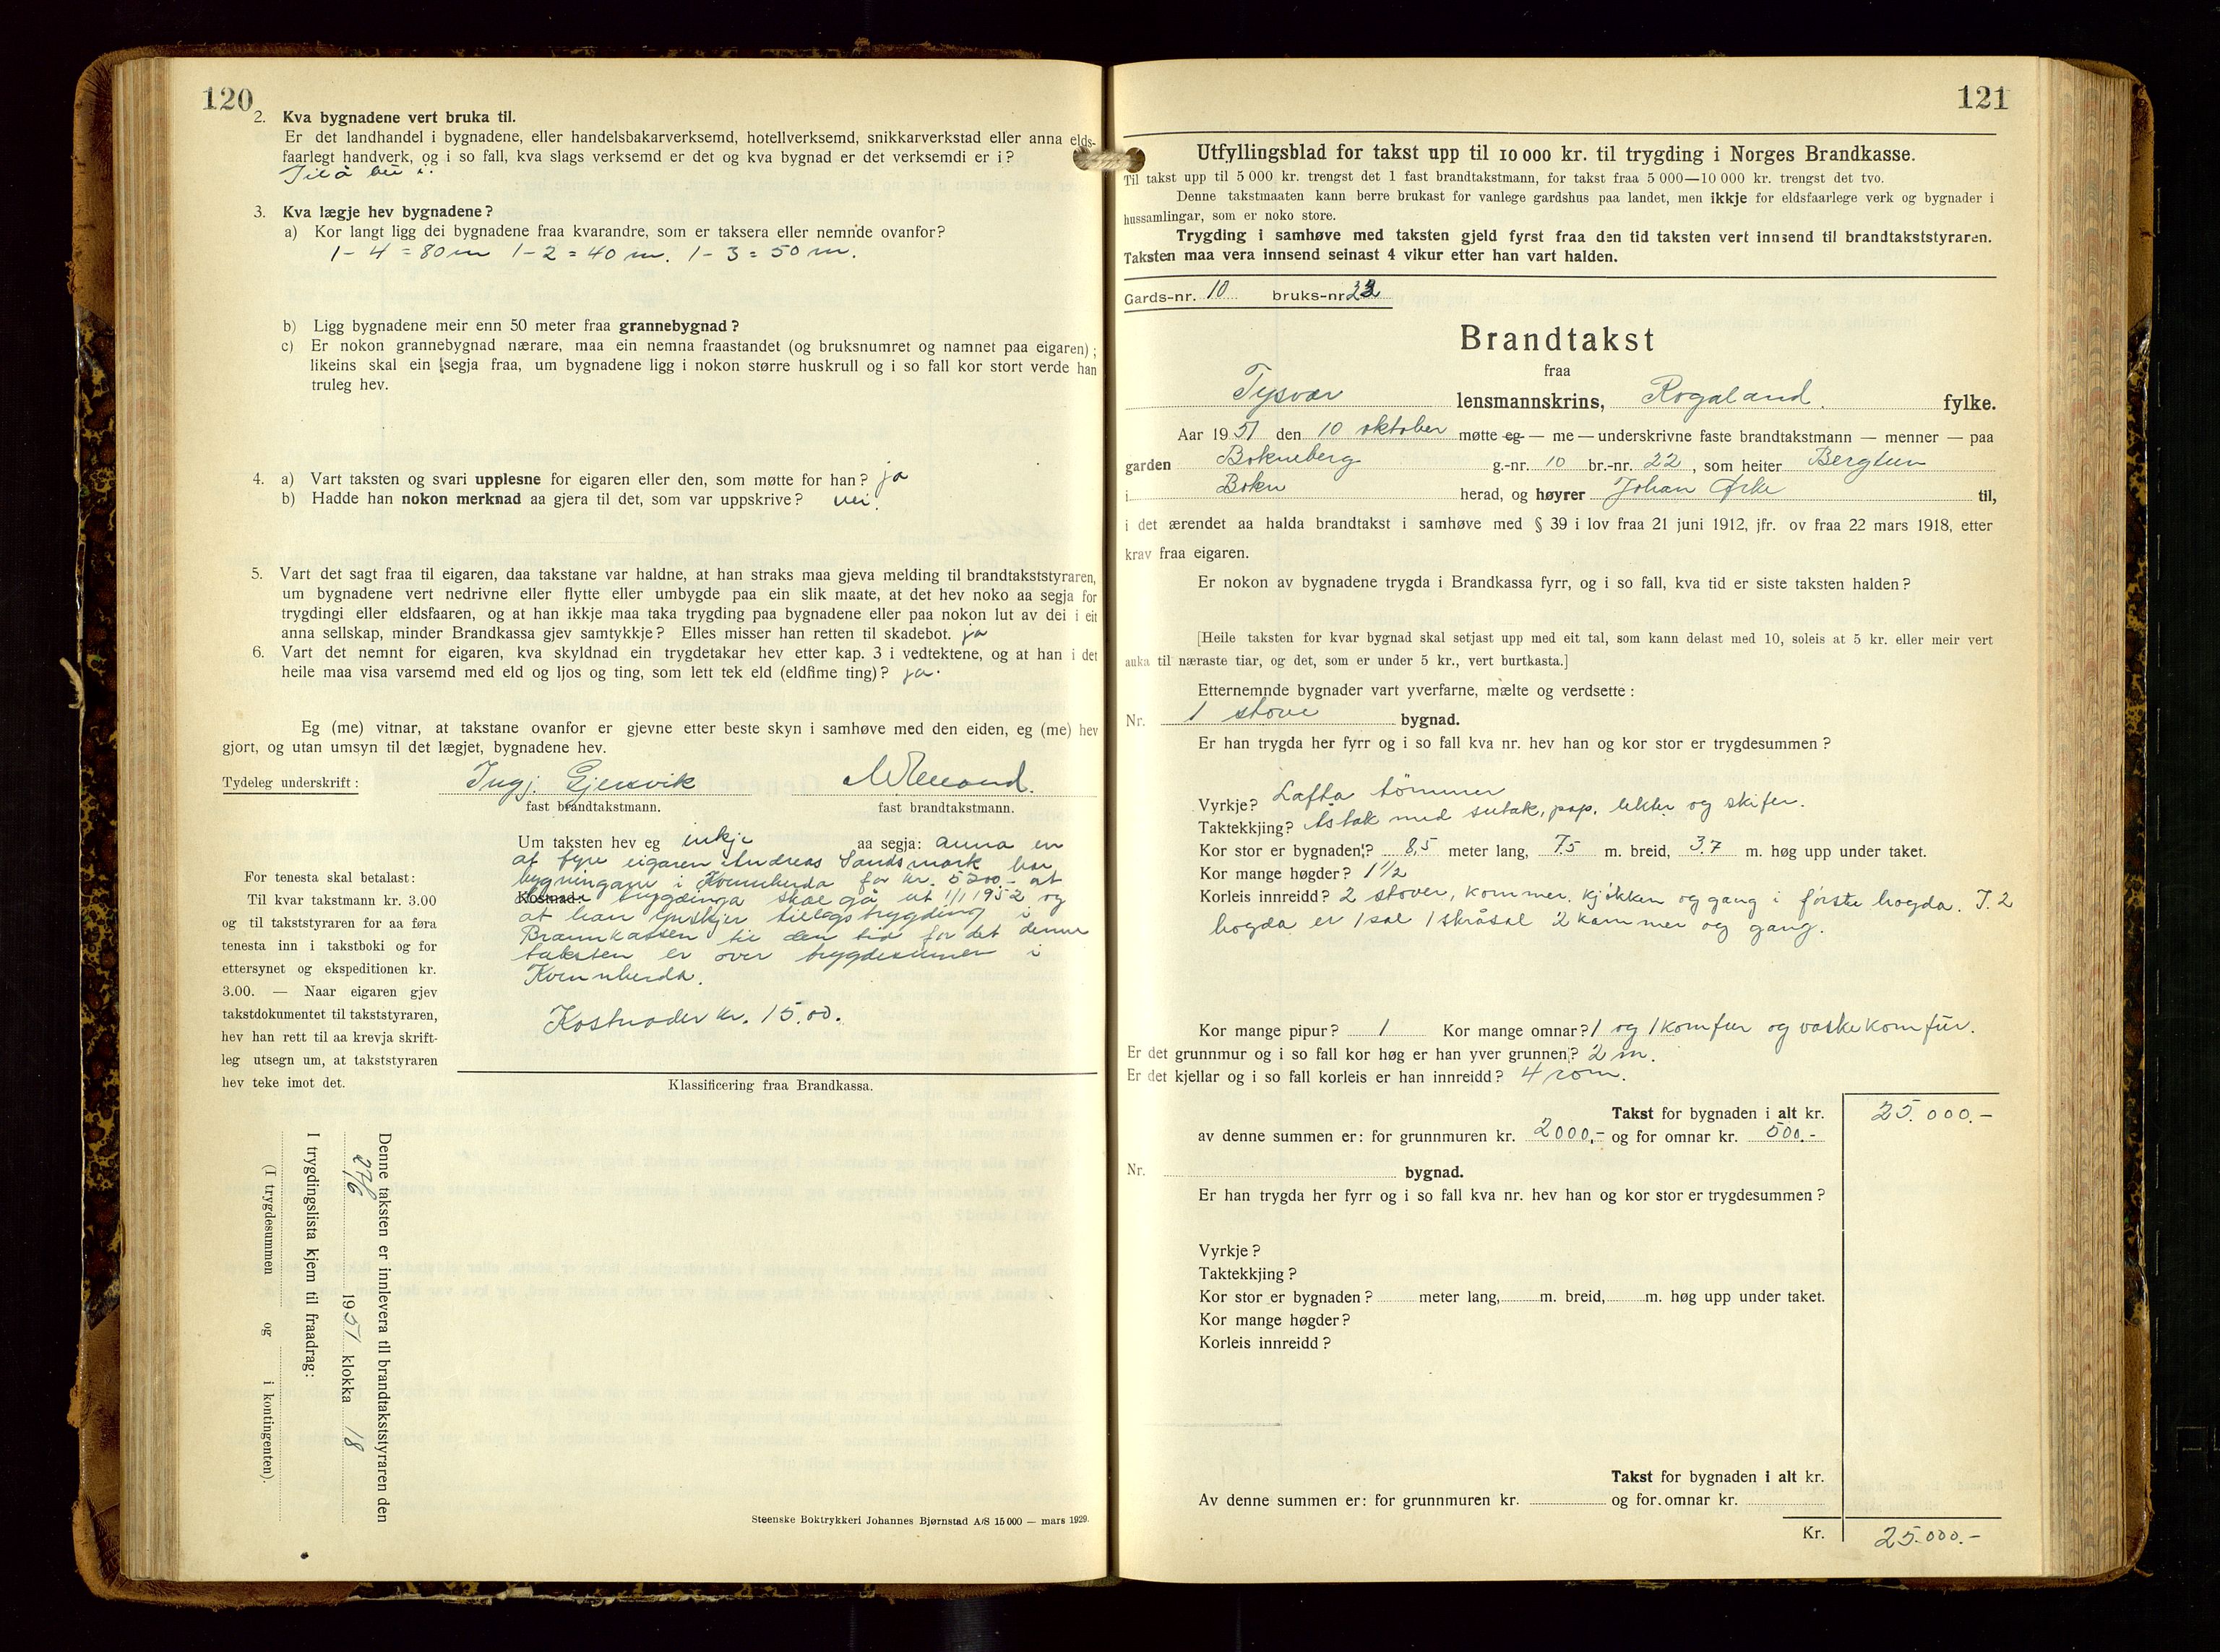 120
2. Kva bygnadene vert bruka til.
Er det landhandel i bygnadene, eller handelsbakarverksemd, hotellverksemd, snikkarverkstad eller anna elds-
faarlegt handverk, og i so fall, kva slags verksemd er det og kva bygnad er det verksemdi er i?
Til å bu i.
3. Kva lægje hev bygnadene?
a) Kor langt ligg dei bygnadene fraa kvarandre, som er taksera eller nemnde ovanfor?
1-4 = 80 m 1-2 = 40 m. 1-3 = 50 m.
b) Ligg bygnadene meir enn 50 meter fraa grannebygnad?
c) Er nokon grannebygnad nærare, maa ein nemna fraastandet (og bruksnumret og namnet paa eigaren);
likeins skal ein segja fraa, um bygnadene ligg i nokon større huskrull og i so fall kor stort verde han
truleg hev.
4. a) Vart taksten og svari upplesne for eigaren eller den, som møtte for han? ja
b) Hadde han nokon merknad aa gjera til det, som var uppskrive? nei.
5. Vart det sagt fraa til eigaren, daa takstane var haldne, at han straks maa gjeva melding til brandtakststyraren,
um bygnadene vert nedrivne eller flytte eller umbygde paa ein slik maate, at det hev noko aa segja for
trygdingi eller eldsfaaren, og at han ikkje maa taka trygding paa bygnadene eller paa nokon lut av dei i eit
anna sellskap, minder Brandkassa gjev samtykkje? Elles misser han retten til skadebot. ja
6. Vart det nemnt for eigaren, kva skyldnad ein trygdetakar hev etter kap. 3 i vedtektene, og at han i det
heile maa visa varsemd med eld og ljos og ting, som lett tek eld (eldfime ting)? ja.
Eg (me) vitnar, at takstane ovanfor er gjevne etter beste skyn i samhøve med den eiden, eg (me) hev
gjort, og utan umsyn til det lægjet, bygnadene hev.
Tydeleg underskrift: Ingj. Gjersvik
fast brandtakstmann. fast brandtakstmann.
Um taksten hev eg inkje aa segja: anna en
at fyre eigaren Andreas Sandsmark har
bygningane i Kvennherda for kr. 5200.- at
Kostnad: trygdinga skal gå ut 1/1 1952 og
at han ynskjer tillegstrygding i
Brannkassen til den tid for det denne
taksten er over trygdesumen i
Kvennherda.
Kostnader kr. 15.00.
For tenesta skal betalast:
Til kvar takstmann kr. 3.00
og til takststyraren for aa føra
tenesta inn i takstboki og for
ettersynet og ekspeditionen kr.
3.00. — Naar eigaren gjev
takstdokumentet til takststyraren,
hev han rett til aa krevja skrift-
leg utsegn um, at takststyraren
hev teke imot det.
Klassificering fraa Brandkassa.
Denne taksten er innlevera til brandtakststyraren den
1951 klokka 18
I trygdingslista kjem til fraadrag:
(I trygdesummen og i kontingenten).
Steenske Boktrykkeri Johannes Bjørnstad A/S 15 000 — mars 1929.
121
Utfyllingsblad for takst upp til 10 000 kr. til trygding i Norges Brandkasse.
Til takst upp til 5 000 kr. trengst det 1 fast brandtakstmann, for takst fraa 5 000—10 000 kr. trengst det tvo.
Denne takstmaaten kann berre brukast for vanlege gardshus paa landet, men ikkje for eldsfaarlege verk og bygnader i
hussamlingar, som er noko store.
Trygding i samhøve med taksten gjeld fyrst fraa den tid taksten vert innsend til brandtakststyraren.
Taksten maa vera innsend seinast 4 vikur etter han vart halden.
Gards-nr. 10 bruks-nr. 22
Brandtakst
fraa
Tysvær lensmannskrins, Rogaland. fylke.
Aar 1951 den 10 oktober møtte eg — me — underskrivne faste brandtakstmann — menner — paa
garden Bokneberg g.-nr. 10 br.-nr. 22, som heiter Bergtun
i Bokn herad, og høyrer Johan til,
i det ærendet aa halda brandtakst i samhøve med § 39 i lov fraa 21 juni 1912, jfr. ov fraa 22 mars 1918, etter
krav fraa eigaren.
Er nokon av bygnadene trygda i Brandkassa fyrr, og i so fall, kva tid er siste taksten halden?
[Heile taksten for kvar bygnad skal setjast upp med eit tal, som kann delast med 10, soleis at 5 kr. eller meir vert
auka til næraste tiar, og det, som er under 5 kr., vert burtkasta.]
Etternemnde bygnader vart yverfarne, mælte og verdsette:
Nr. 1 stove bygnad.
Er han trygda her fyrr og i so fall kva nr. hev han og kor stor er trygdesummen?
Vyrkje? Lafta tømmer
Taktekkjing? Åstak med sutak, pap, lekter og skifer.
Kor stor er bygnaden? 8,5 meter lang, 7.5 m. breid, 3.7 m. høg upp under taket.
Kor mange høgder? 1 1/2
Korleis innreidd? 2 stover, kommer, kjøkken og gang i første høgda. I. 2
høgda er 1 sal 1 skråsal 2 kammer og gang.
Kor mange pipur? 1 Kor mange omnar? 1 og 1 komfur og vaskekomfur.
Er det grunnmur og i so fall kor høg er han yver grunnen? 2 m.
Er det kjellar og i so fall korleis er han innreidd? 4 rom.
Takst for bygnaden i alt kr. 25.000.-
av denne summen er: for grunnmuren kr. 2000,- og for omnar kr. 500.-
Nr. bygnad.
Er han trygda her fyrr og i so fall kva nr. hev han og kor stor er trygdesummen?
Vyrkje?
Taktekkjing?
Kor stor er bygnaden? meter lang, m. breid, m. høg upp under taket.
Kor mange høgder?
Korleis innreidd?
Takst for bygnaden i alt kr.
Av denne summen er: for grunnmuren kr. og for omnar kr.
Kr. 25.000.-